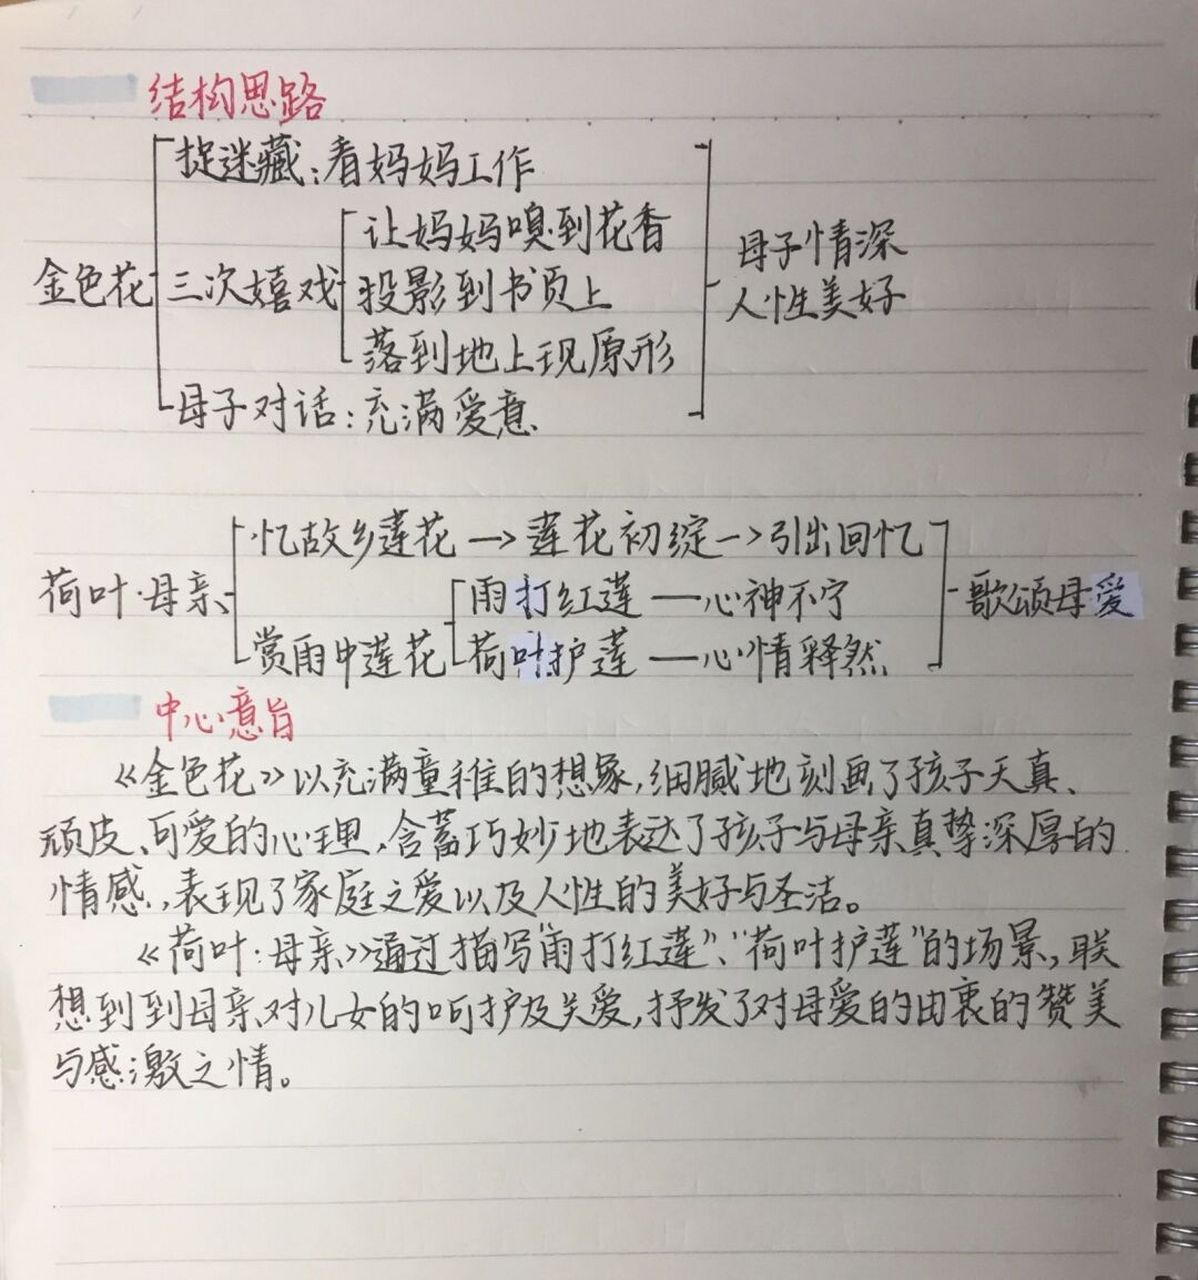 结构思路
捉迷藏:看妈妈工作
让妈妈嗅到花香
母子情深
金色花
三次嬉戏
投影到书页上
人性美好
落到地上现原形
母子对话:充满爱意
忆故乡莲花→莲花初绽→引出回忆
荷叶·母亲
雨打红莲—心神不宁
歌颂母爱
赏雨中莲花
荷叶护莲—心情释然
中心意旨
《金色花》以充满童稚的想象,细腻地刻画了孩子天真、
顽皮、可爱的心理,含蓄巧妙地表达了孩子与母亲真挚深厚的
情感,表现了家庭之爱以及人性的美好与圣洁。
《荷叶·母亲》通过描写“雨打红莲”、“荷叶护莲”的场景,联
想到到母亲对儿女的呵护及关爱,抒发了对母爱的由衷的赞美
与感激之情。